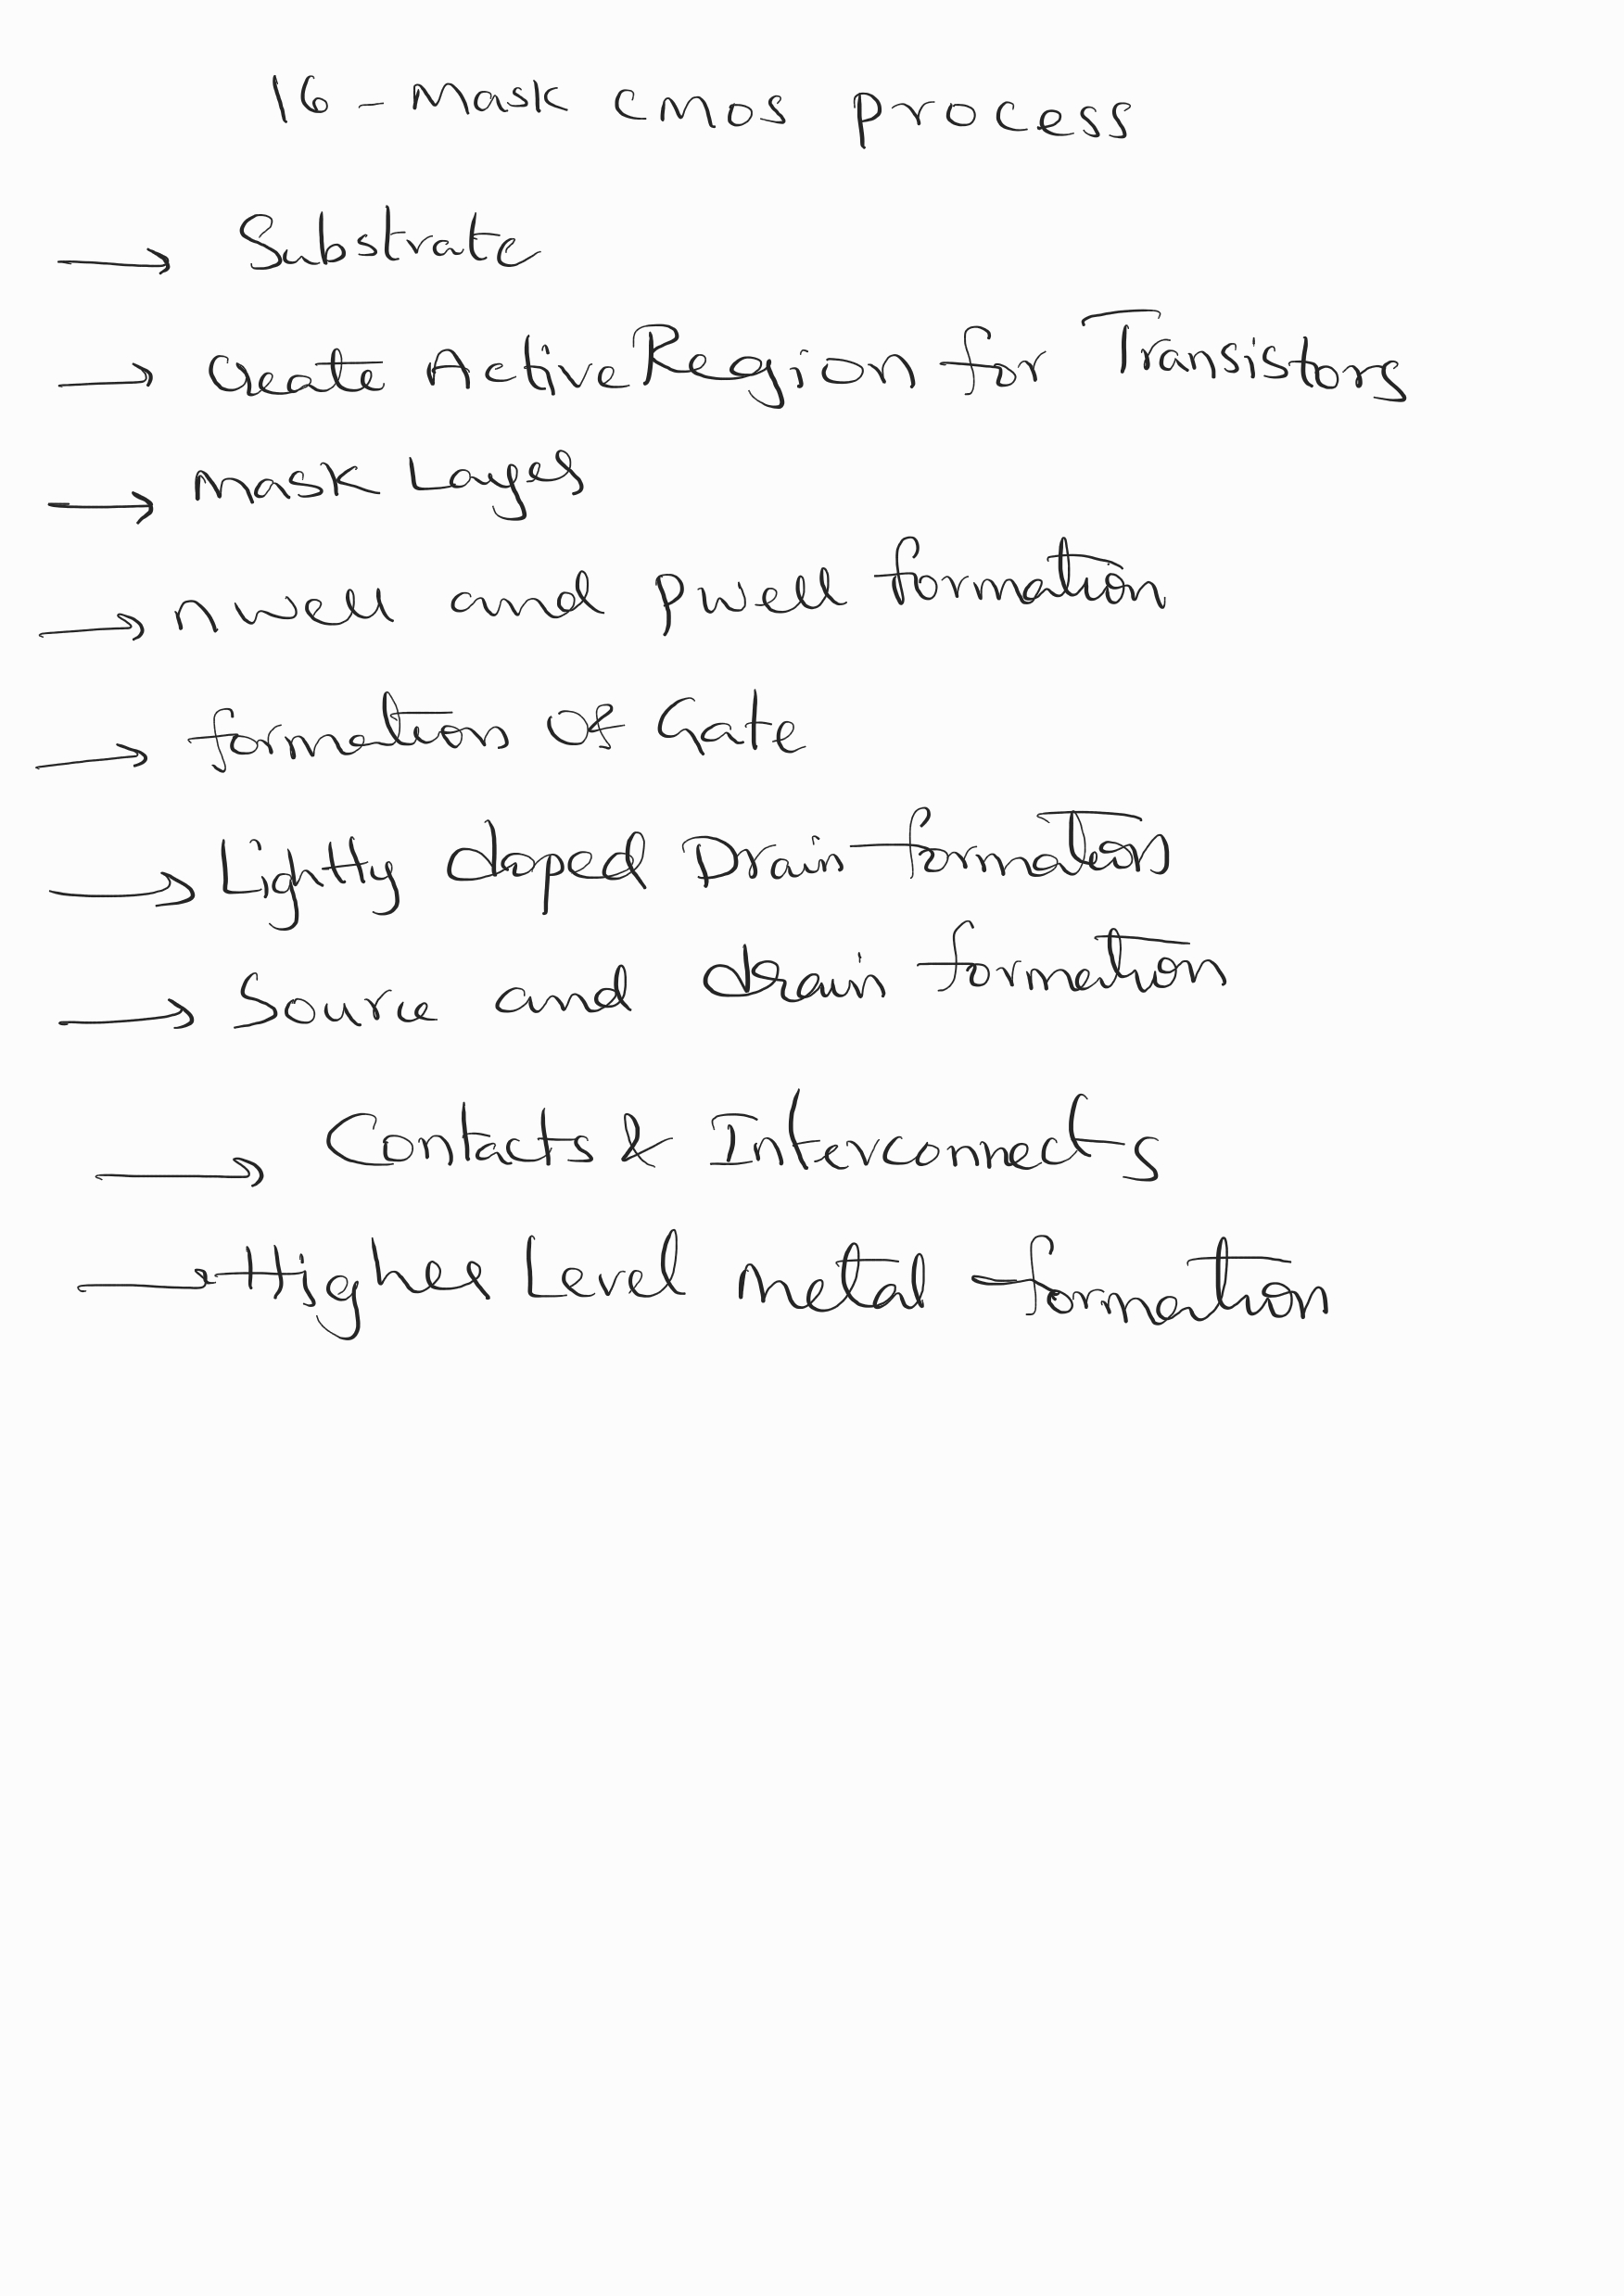 16 - Mask CMOS process
→ Substrate
→ Create Active Region for Transistors
→ Mask Layers
→ n well and p well formation
→ formation of Gate
→ Lightly doped Drain formation
→ Source and drain formation
→ Contacts & Interconnects
→ Higher Level metal formation